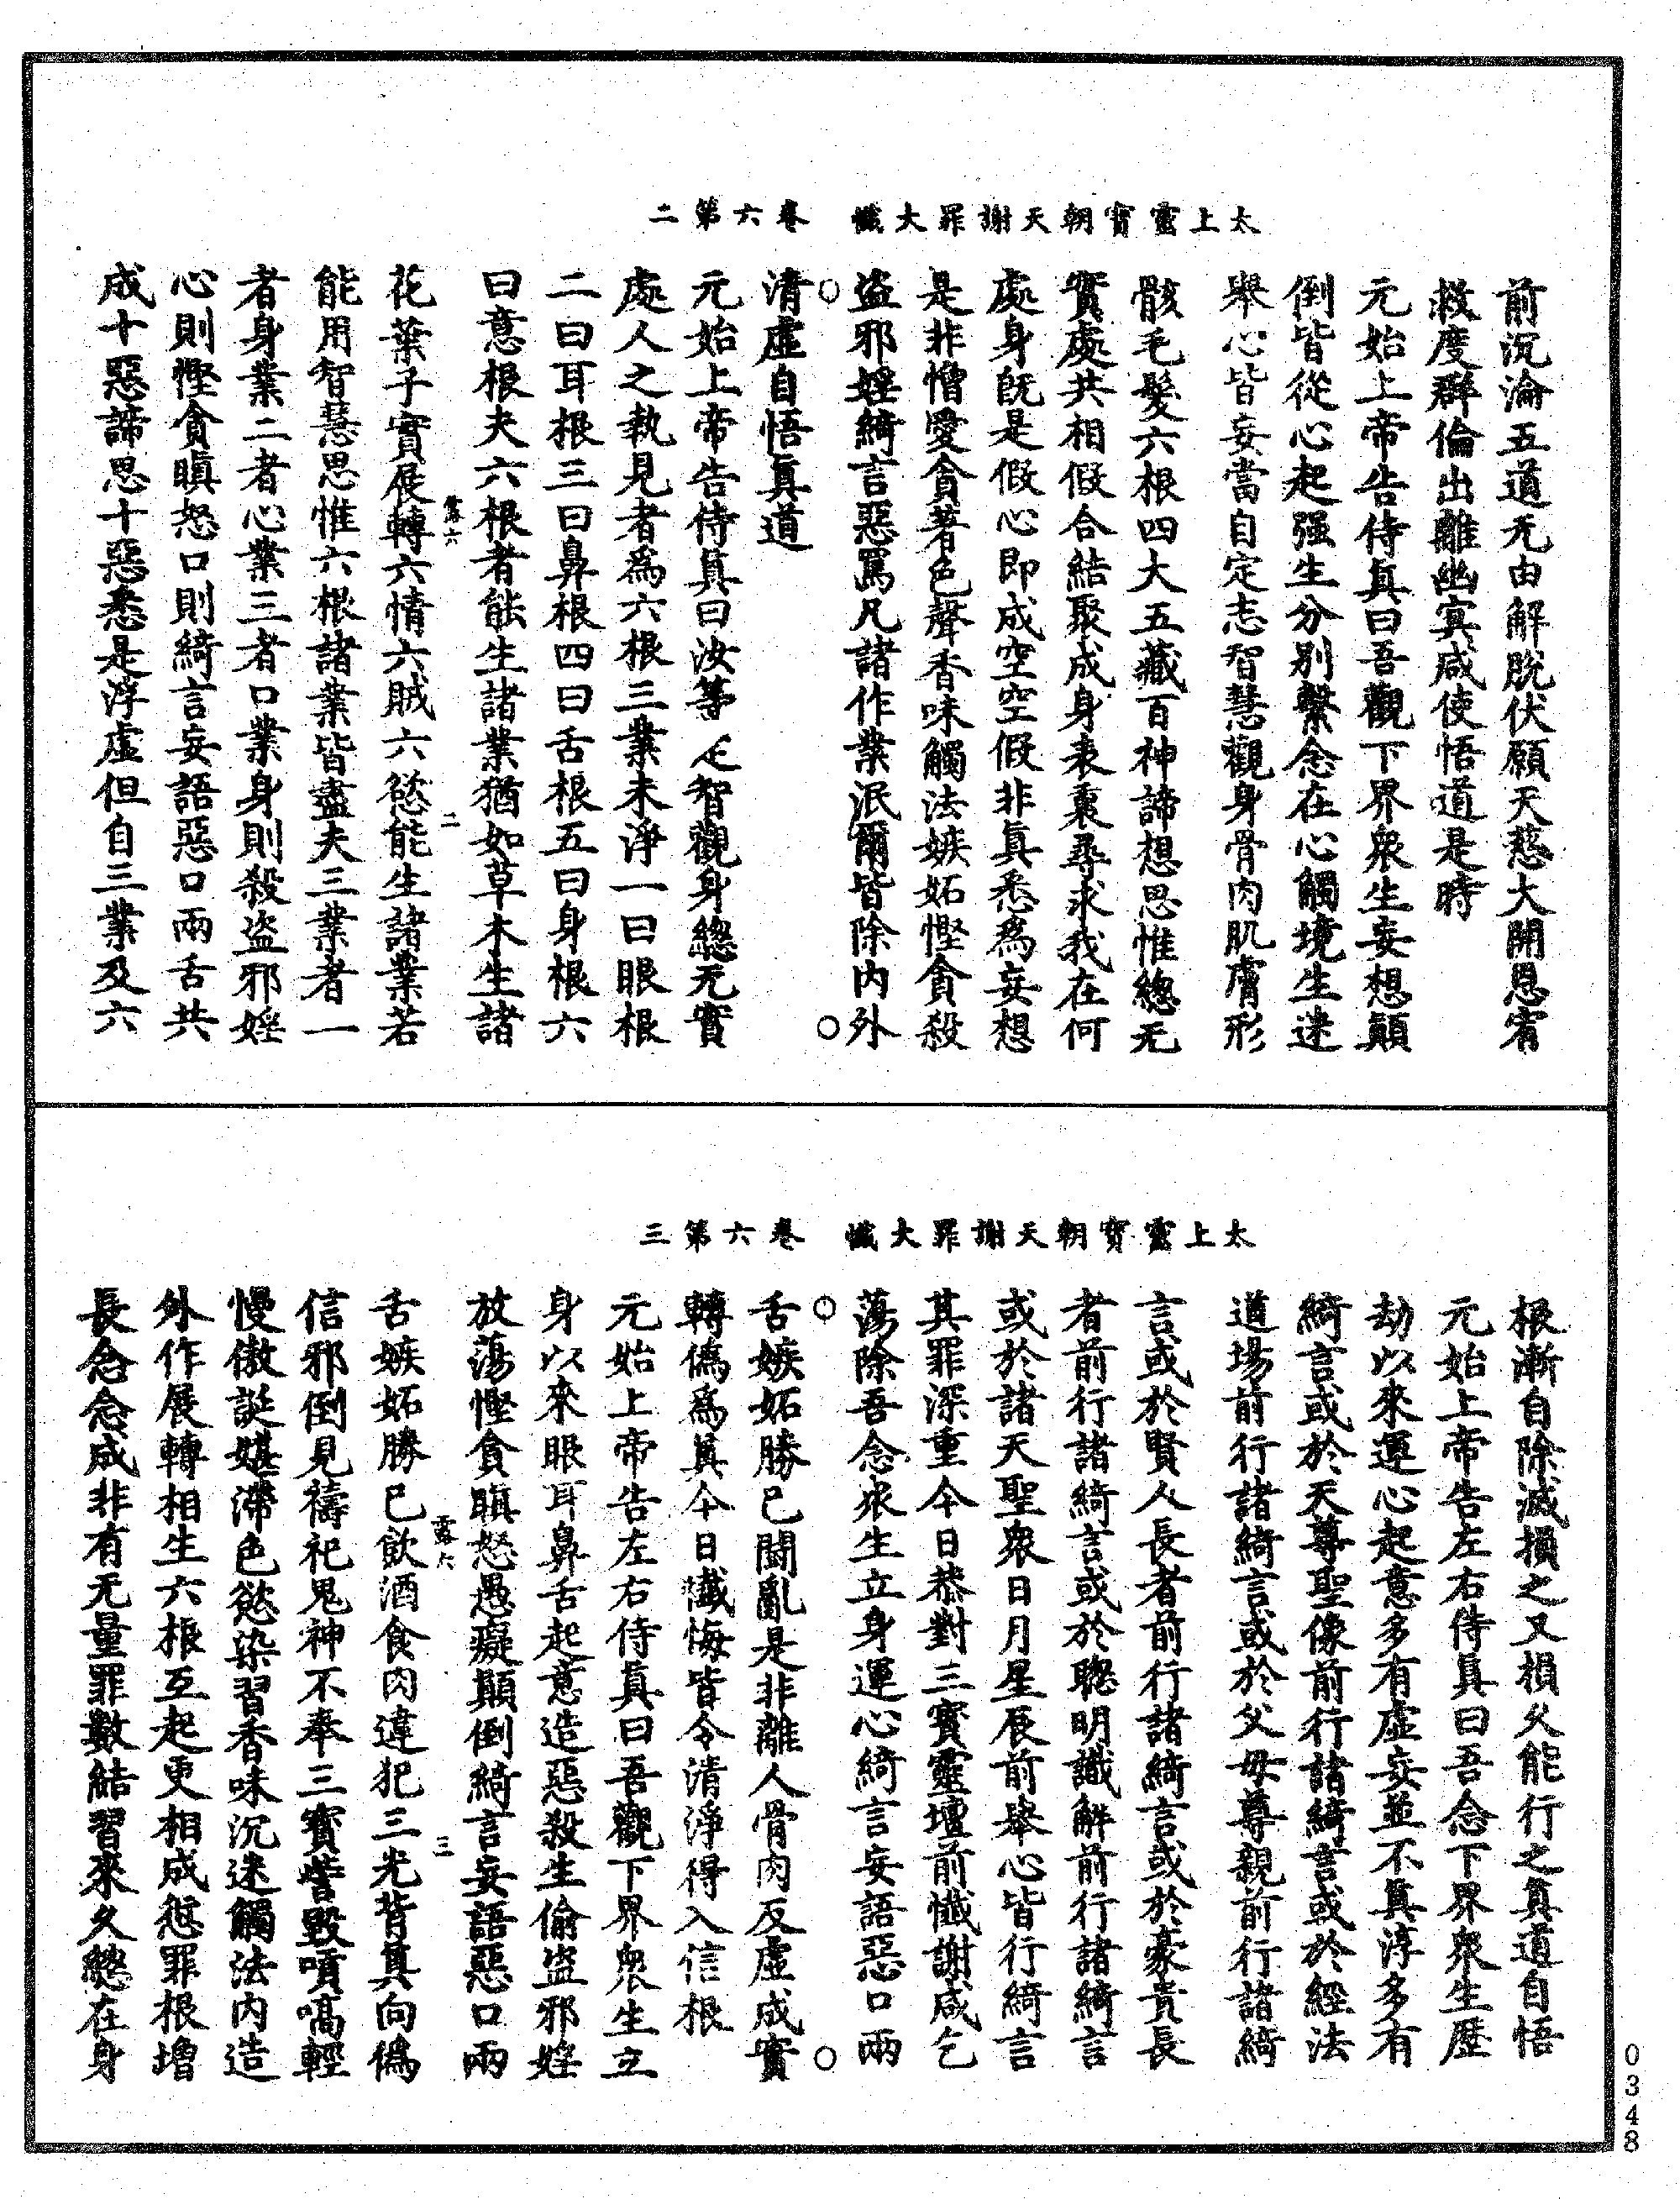 太上靈寶朝天謝罪大懺　卷六第二
前沉淪五道无由解脫伏願天慈大開恩宥
救度群倫出離幽冥咸使悟道是時
元始上帝告侍眞曰吾觀下界衆生妄想顚
倒皆從心起强生分别繫念在心觸境生迷
舉心皆妄當自定志智慧觀身骨肉肌膚形
骸毛髮六根四大五藏百神諦想思惟總无
實處共相假合結聚成身表裏尋求我在何
處身旣是假心即成空空假非眞悉爲妄想
是非憎愛貪著色聲香味觸法嫉妬慳貪殺
盜邪婬綺言惡罵凡諸作業泯爾皆除内外
清虛自悟眞道
元始上帝告侍眞曰汝等正智觀身總无實
處人之執見者爲六根三業未淨一曰眼根
二曰耳根三曰鼻根四曰舌根五曰身根六
曰意根夫六根者能生諸業猶如草木生諸
露六　二
花葉子實展轉六情六賊六慾能生諸業若
能用智慧思惟六根諸業皆盡夫三業者一
者身業二者心業三者口業身則殺盜邪婬
心則慳貪瞋怒口則綺言妄語惡口兩舌共
成十惡諦思十惡悉是浮虛但自三業及六
太上靈寶朝天謝罪大懺　卷六第三
根漸自除滅損之又損久能行之眞道自悟
元始上帝告左右侍眞曰吾念下界衆生歷
劫以來運心起意多有虛妄並不眞淳多有
綺言或於天尊聖像前行諸綺言或於經法
道場前行諸綺言或於父母尊親前行諸綺
言或於賢人長者前行諸綺言或於豪貴長
者前行諸綺言或於聰明識解前行諸綺言
或於諸天聖衆日月星辰前舉心皆行綺言
其罪深重今日恭對三寶靈壇前懺謝咸乞
蕩除吾念衆生立身運心綺言妄語惡口兩
舌嫉妬勝已鬭亂是非離人骨肉反虛成實
轉僞爲眞今日懺悔皆令清淨得入信根
元始上帝告左右侍眞曰吾觀下界衆生立
身以來眼耳鼻舌起意造惡殺生偷盜邪婬
放蕩慳貪瞋怒愚癡顚倒綺言妄語惡口兩
露六　三
舌嫉妬勝已飲酒食肉違犯三光背眞向僞
信邪倒見禱祀鬼神不奉三寶訾毀嘖嗃輕
慢傲誕媅滯色慾染習香味沉迷觸法内造
外作展轉相生六根互起更相成愆罪根增
長念念成非有无量罪數結習來久總在身
0348